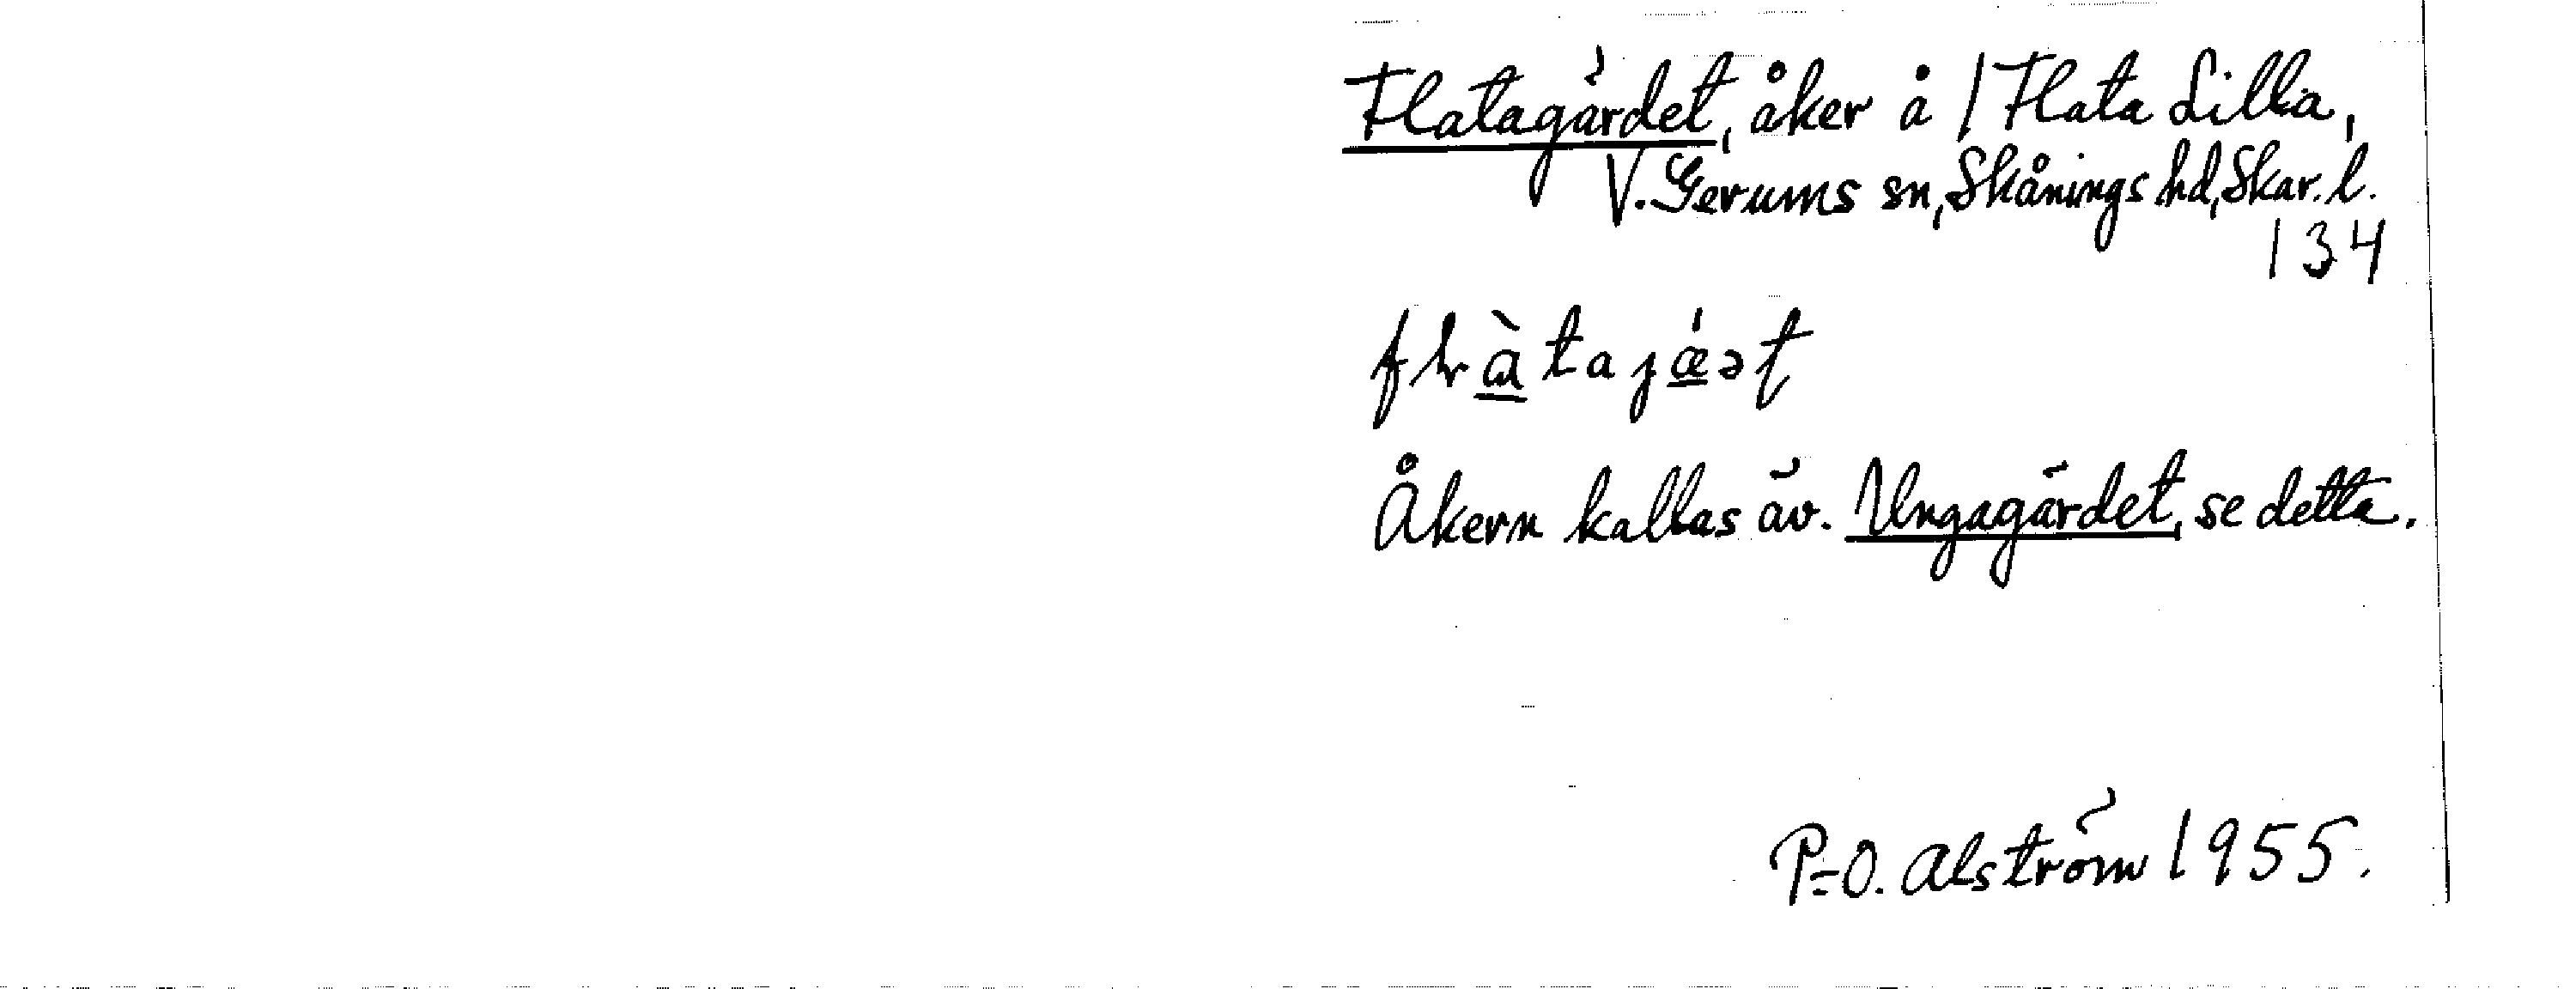 Flatagärdet, åker å 1 Flata Lilla,
V. Gerums sn, Skånings hd, Skar. l.
134
Åkern kallas äv. Ungagärdet, se detta.
P=O. Alström 1955.